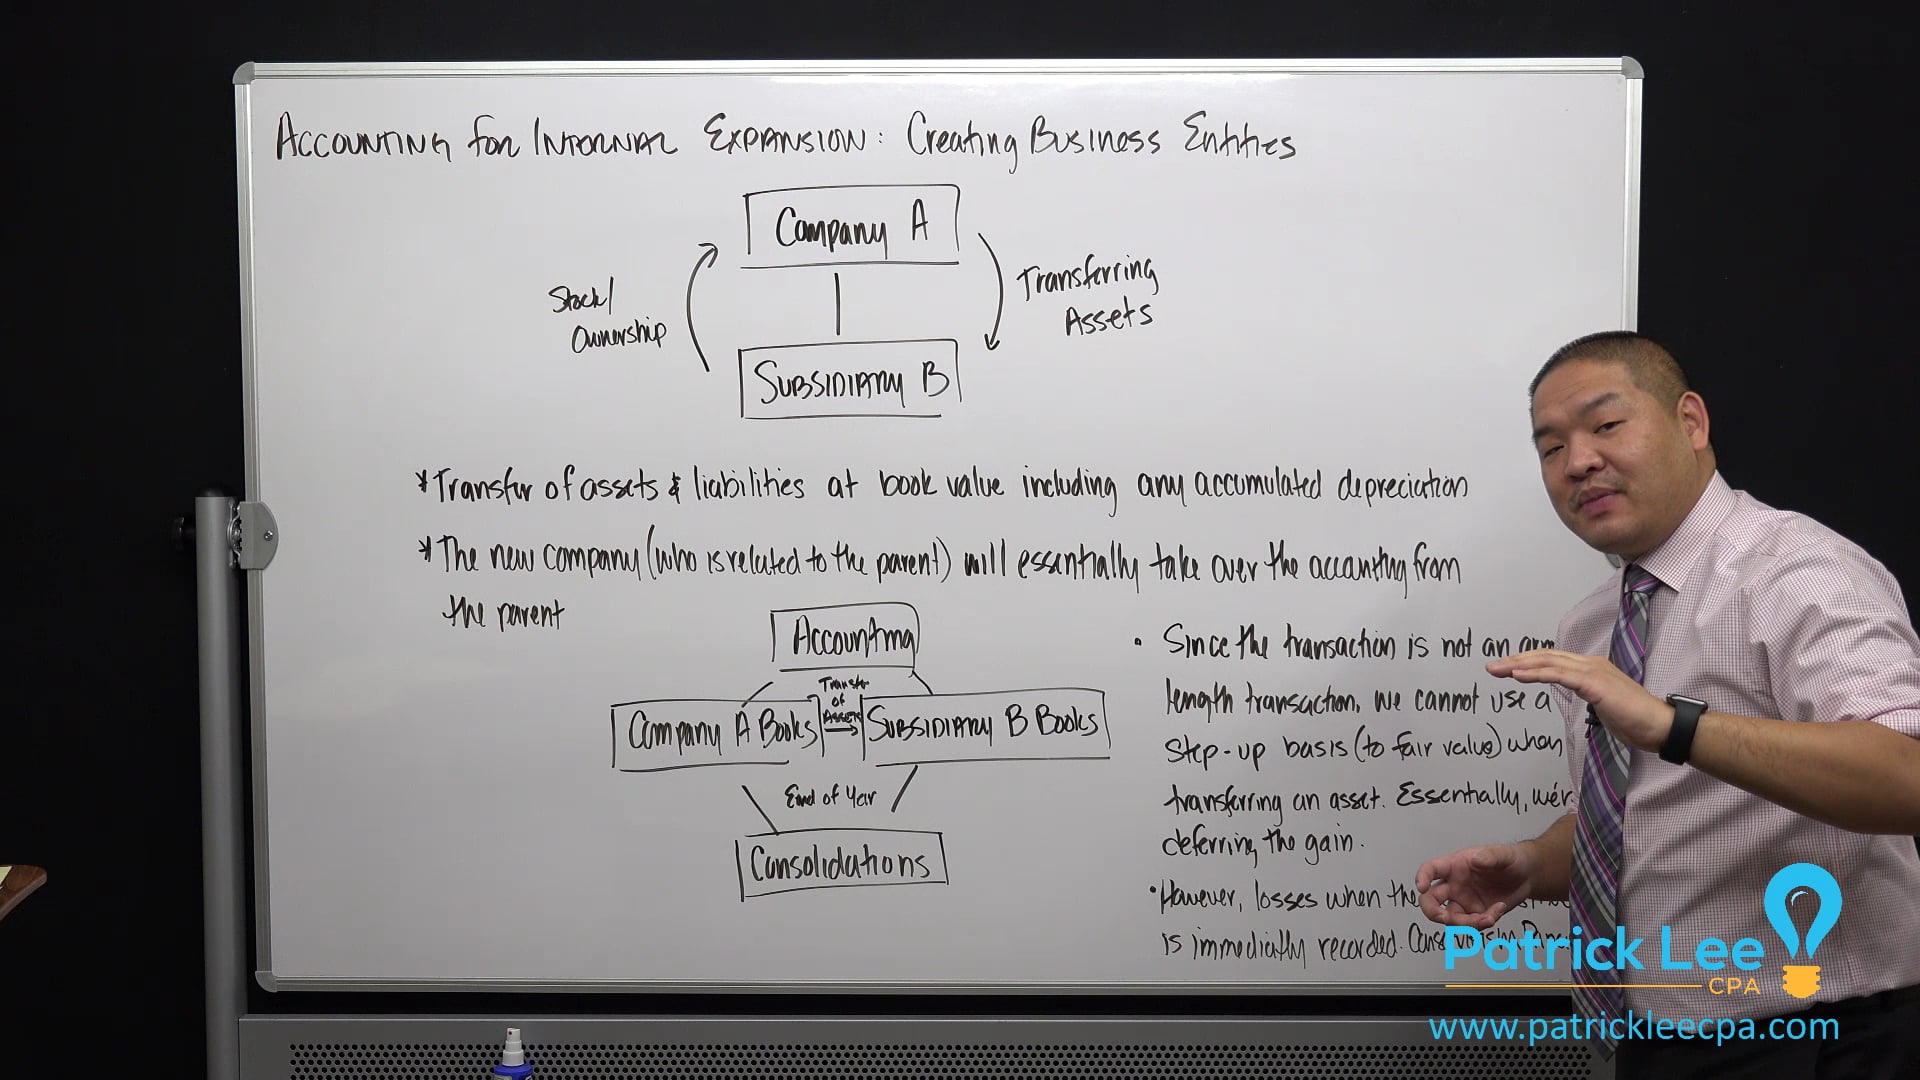 Accounting for Internal Expansion: Creating Business Entities
Company A
Stock/
Ownership
Transferring
Assets
Subsidiary B
* Transfer of assets & liabilities at book value including any accumulated depreciation
* The new company (who is related to the parent) will essentially take over the accounting from
the parent
Accounting
Transfer
of
Assets
Company A Books
Subsidiary B Books
End of Year
Consolidations
• Since the transaction is not an arm
length transaction, we cannot use a
step-up basis (to fair value) when
transferring an asset. Essentially, we'r
deferring the gain.
• However, losses when the
is immediatly recorded.
Patrick Lee
CPA
www.patrickleecpa.com